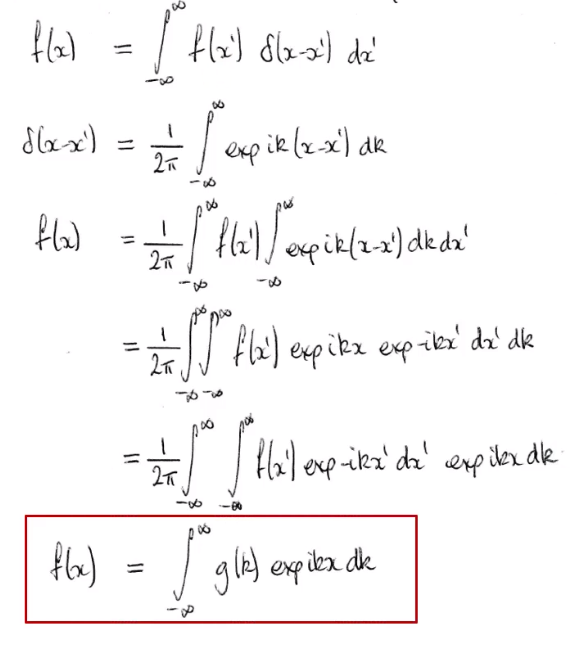 f(x) = ∫_{-∞}^{∞} f(x') δ(x-x') dx'
δ(x-x') = 1/2π ∫_{-∞}^{∞} exp ik(x-x') dk
f(x) = 1/2π ∫_{-∞}^{∞} f(x') ∫_{-∞}^{∞} exp ik(x-x') dk dx'
= 1/2π ∫_{-∞}^{∞} ∫_{-∞}^{∞} f(x') exp ikx exp -ikx' dx' dk
= 1/2π ∫_{-∞}^{∞} ∫_{-∞}^{∞} f(x') exp -ikx' dx' exp ikx dk
f(x) = ∫_{-∞}^{∞} g(k) exp ikx dk